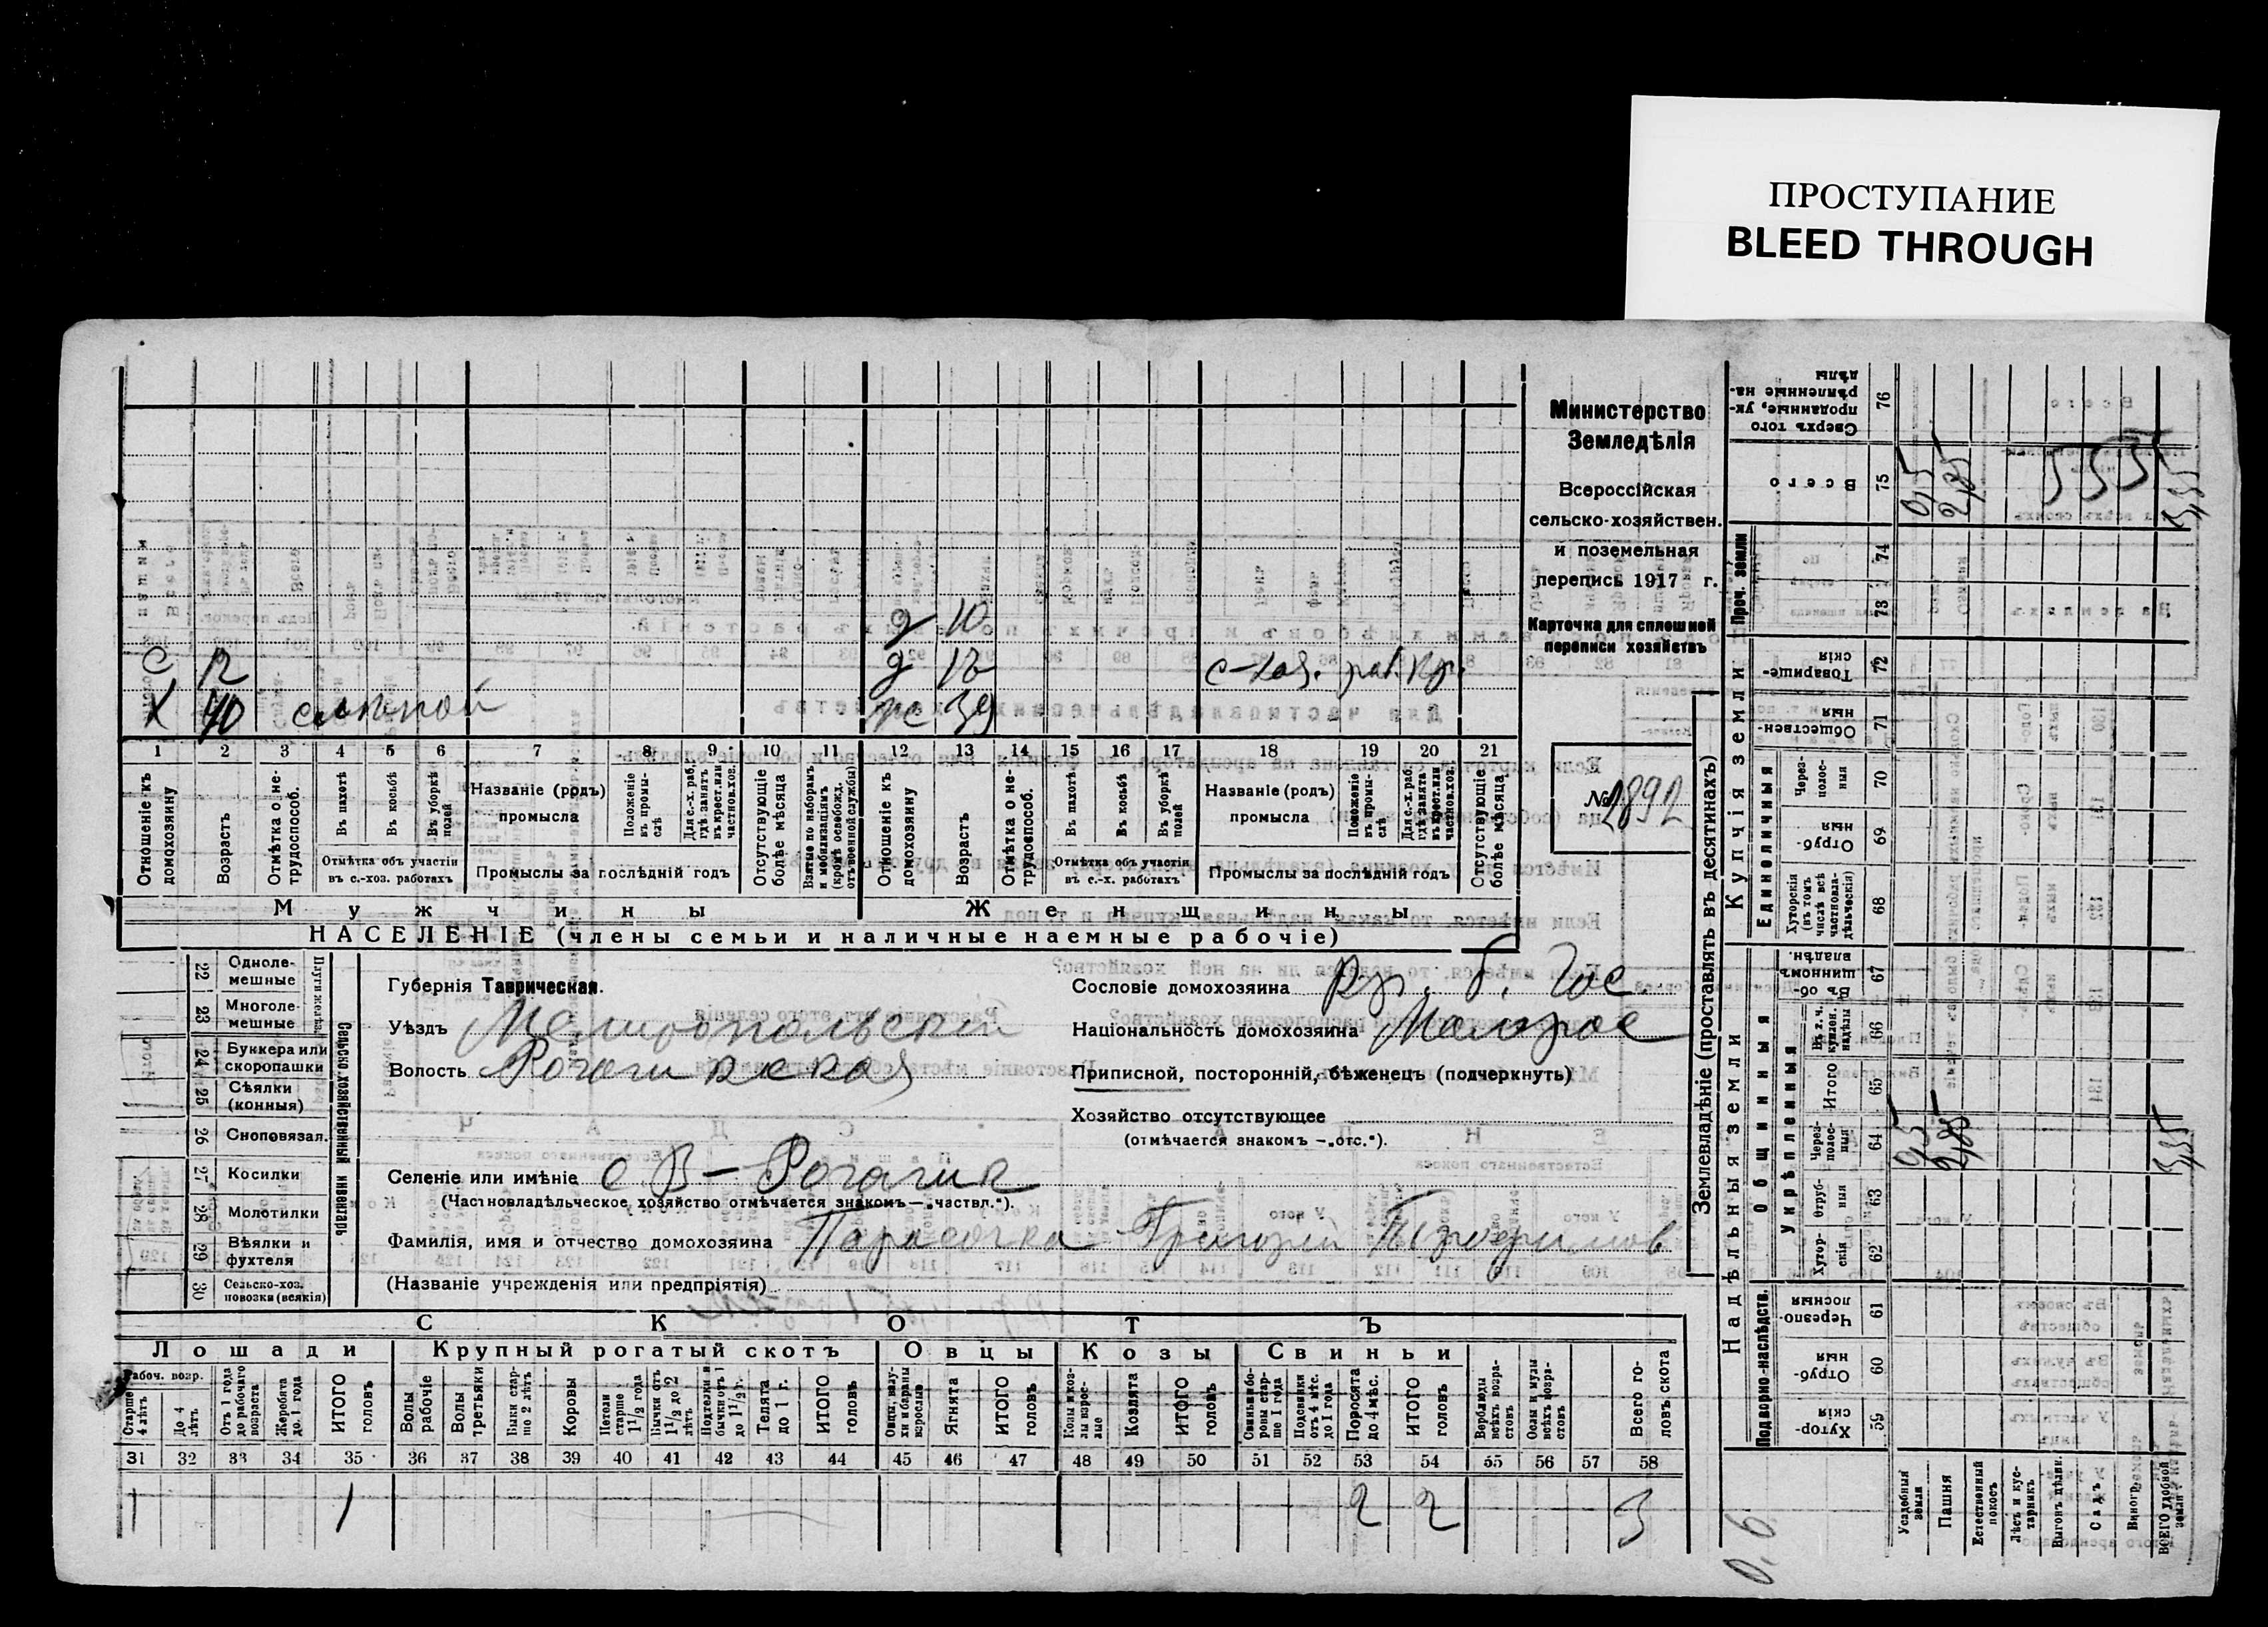 ПРОСТУПАНИЕ
BLEED THROUGH
Министерство
Земледѣлія
Всероссійская
сельско-хозяйствен.
и поземельная
перепись 1917 г.
Карточка для сплошной
переписи хозяйствъ
№ 2892
д 10
С 12 д 12 с-хоз. раб. кр.
Х 40 слѣпой ж 39
1 2 3 4 5 6 7 8 9 10 11 12 13 14 15 16 17 18 19 20 21
Отношеніе къ домохозяину
Возрастъ
Отмѣтка о не-трудоспособ.
Въ пахотѣ
Въ косьбѣ
Въ уборкѣ полей
Отмѣтка объ участіи въ с.-хоз. работахъ
Названіе (родъ) промысла
Положеніе въ промы-слѣ
Для с.-х. раб. гдѣ занятъ въ крест. или частнов. хоз.
Промыслы за послѣдній годъ
Отсутствующіе болѣе мѣсяца
Взятые по наборамъ и мобилизаціямъ (кромѣ освобожд. отъ военной службы)
Отношеніе къ домохозяину
Возрастъ
Отмѣтка о не-трудоспособ.
Въ пахотѣ
Въ косьбѣ
Въ уборкѣ полей
Отмѣтка объ участіи въ с.-х. работахъ
Названіе (родъ) промысла
Положеніе въ промы-слѣ
Для с.-х. раб. гдѣ занята въ крест. или частнов. хоз.
Промыслы за послѣдній годъ
Отсутствующіе болѣе мѣсяца
Мужчины Женщины
НАСЕЛЕНІЕ (члены семьи и наличные наемные рабочіе)
22 Одноле-мешные
23 Многоле-мешные
24 Бункера или скоропашки
25 Сѣялки (конныя)
26 Сноповязал.
27 Косилки
28 Молотилки
29 Вѣялки и фухтеля
30 Сельско-хоз. повозки (всякія)
Сельско-хозяйственный инвентарь
Губернія Таврическая.
Уѣздъ Мелитопольскій
Волость Рогачикская
Селеніе или имѣніе с В-Рогачик
(Частновладѣльческое хозяйство отмѣчается знакомъ—„частвл.“).
Фамилія, имя и отчество домохозяина Парасочка Григорій
(Названіе учрежденія или предпріятія)
Сословіе домохозяина кр. б. Гос.
Національность домохозяина Малорос
Приписной, посторонній, бѣженецъ (подчеркнуть)
Хозяйство отсутствующее
(отмѣчается знакомъ —„отс.“).
СКОТЪ
Лошади Крупный рогатый скотъ Овцы Козы Свиньи
Рабоч. возр.
Старше 4 лѣтъ
До 4 лѣтъ
Отъ 1 года до рабочаго возраста
Жеребята до 1 года
ИТОГО головъ
Волы рабочіе
Волы третьяки
Быки стар-ше 2 лѣтъ
Коровы
Нетели старше 1 1/2 года
Бычки отъ 1 1/2 до 2 лѣтъ
Подтелки и бычки отъ 1 до 1 1/2 г.
Телята до 1 г.
ИТОГО головъ
Овцы, валу-хи и бараны взрослые
Ягнята
ИТОГО головъ
Козы и коз-лы взрос-лые
Козлята
ИТОГО головъ
Свиньи и бо-ровы стар-ше 1 года
Подсвинки отъ 4 мѣс. до 1 года
Поросята до 4 мѣс.
ИТОГО головъ
Верблюды всѣхъ возра-стовъ
Ослы и мулы всѣхъ возра-стовъ
Всего го-ловъ скота
31 32 33 34 35 36 37 38 39 40 41 42 43 44 45 46 47 48 49 50 51 52 53 54 55 56 57 58
1 1 2 2 3
Землевладѣніе (проставлять въ десятинахъ)
Надѣльныя земли Купчія земли Проч. земли
Подворно-наслѣдств.
Общинныя
Укрѣпленныя
Единоличныя
59 Хутор-скія
60 Отруб-ныя
61 Черезпо-лосныя
62 Хутор-скія
63 Отруб-ныя
64 Через-полос-ныя
65 Итого
66 Въ т. ч. куплен. надѣлы
67 Въ об-щинномъ владѣн.
68 Хуторскія (въ томъ числѣ всѣ частновла-дѣльческія)
69 Отруб-ныя
70 Через-полос-ныя
71 Обществен-ныя
72 Товарище-скія
73
74
75 Всего
76 Сверхъ того проданные, ук-рѣпленные на-дѣлы
Усадебная земля
Пашня
Естественный покосъ
Лѣсъ и кус-тарникъ
Выгонъ дѣлян.
Садъ
Виногр.
ВСЕГО удобной земли
0,6